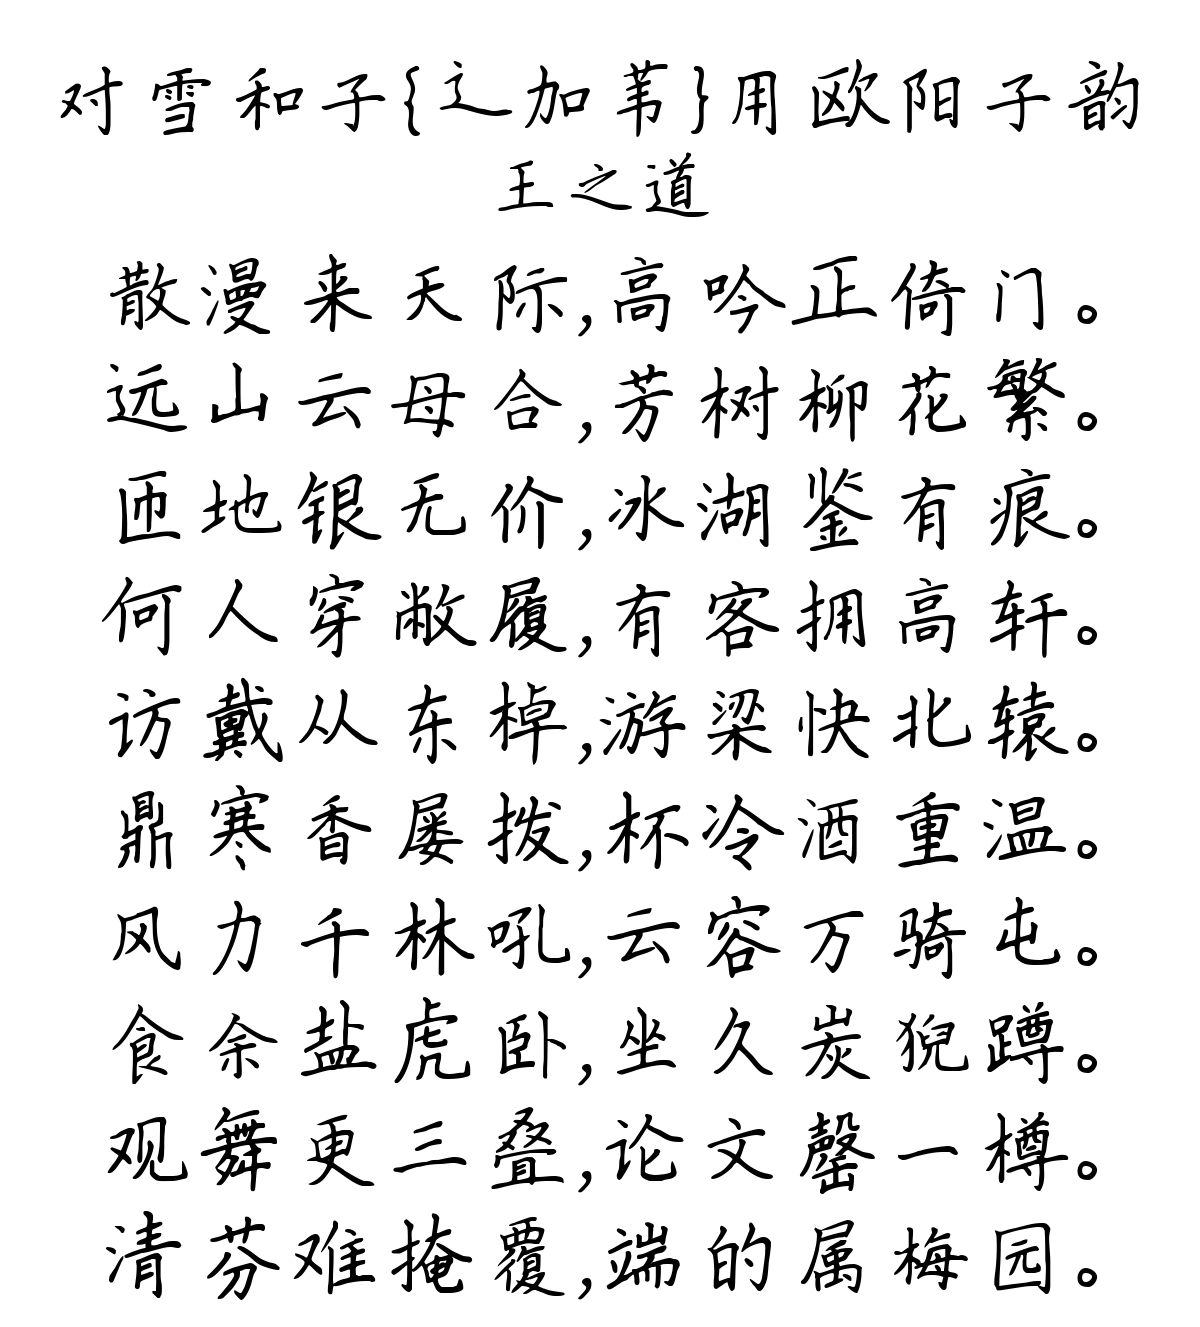 对雪和子{辶加苇}用欧阳子韵
王之道
散漫来天际,高吟正倚门。
远山云母合,芳树柳花繁。
匝地银无价,冰湖鉴有痕。
何人穿敝履,有客拥高轩。
访戴从东棹,游梁快北辕。
鼎寒香屡拨,杯冷酒重温。
风力千林吼,云容万骑屯。
食余盐虎卧,坐久炭猊蹲。
观舞更三叠,论文罄一樽。
清芬难掩覆,端的属梅园。